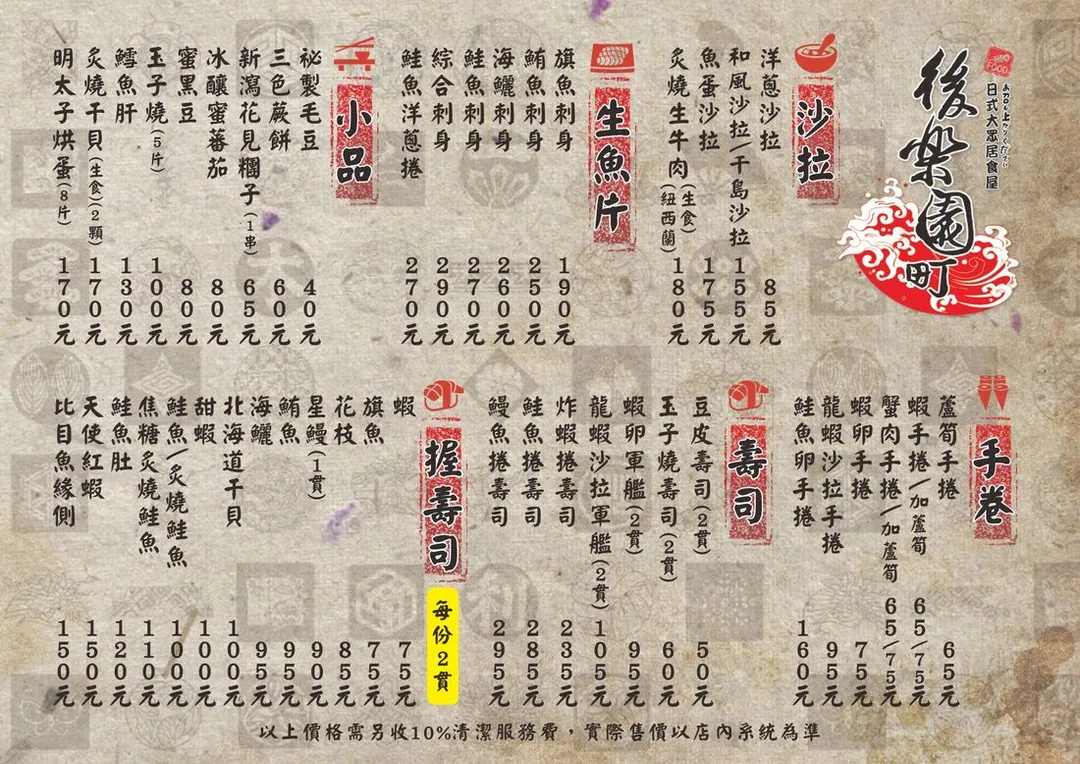 後樂園町
日式大眾居食屋
FOOD
沙拉
洋蔥沙拉 85元
和風沙拉/千島沙拉 155元
魚蛋沙拉 175元
炙燒生牛肉(生食)(紐西蘭) 180元
生魚片
旗魚刺身 190元
鮪魚刺身 250元
海鱺刺身 260元
鮭魚刺身 270元
綜合刺身 290元
鮭魚洋蔥捲 270元
小品
祕製毛豆 40元
三色蕨餅 60元
新瀉花見糰子(1串) 65元
冰釀蜜蕃茄 80元
蜜黑豆 80元
玉子燒(5片) 100元
鱈魚肝 130元
炙燒干貝(生食)(2顆) 170元
明太子烘蛋(8片) 170元
手卷
蘆筍手捲 65元
蝦手捲/加蘆筍 65/75元
蟹肉手捲/加蘆筍 65/75元
蝦卵手捲 75元
龍蝦沙拉手捲 95元
鮭魚卵手捲 160元
壽司
豆皮壽司(2貫) 50元
玉子燒壽司(2貫) 60元
蝦卵軍艦(2貫) 95元
龍蝦沙拉軍艦(2貫) 105元
炸蝦捲壽司 235元
鮭魚捲壽司 285元
鰻魚捲壽司 295元
握壽司
每份2貫
蝦 75元
旗魚 75元
花枝 85元
星鰻(1貫) 90元
鮪魚 95元
海鱺 95元
北海道干貝 100元
甜蝦 100元
鮭魚/炙燒鮭魚 100元
焦糖炙燒鮭魚 110元
鮭魚肚 120元
天使紅蝦 150元
比目魚緣側 150元
以上價格需另收10%清潔服務費，實際售價以店內系統為準